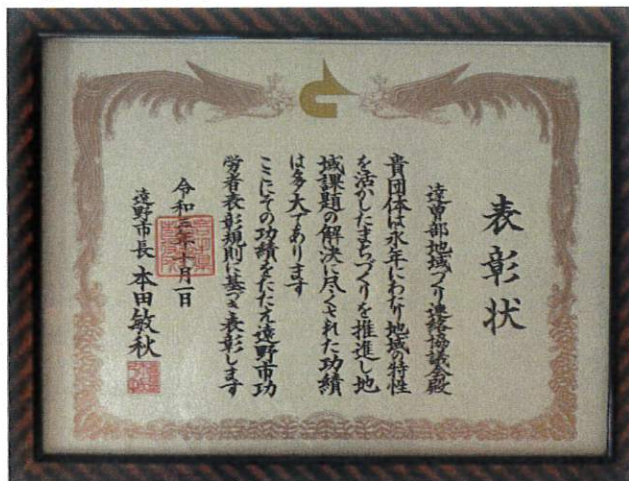 表彰状
達曽部地域づくり連絡協議会殿
貴団体は永年にわたり地域の特性
を活かしたまちづくりを推進し地
域課題の解決に尽くされた功績
は多大であります
ここにその功績をたたえ遠野市功
労者表彰規則に基づき表彰します
令和三年十月一日
遠野市長 本田敏秋